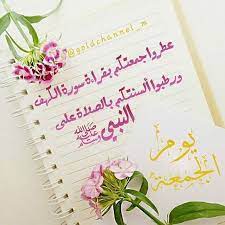 @goldchannel_m
عطروا جمعتكم بقراءة سورة الكهف
ورطبوا ألسنتكم بالصلاة على
النبي ﷺ
يوم
الجمعة